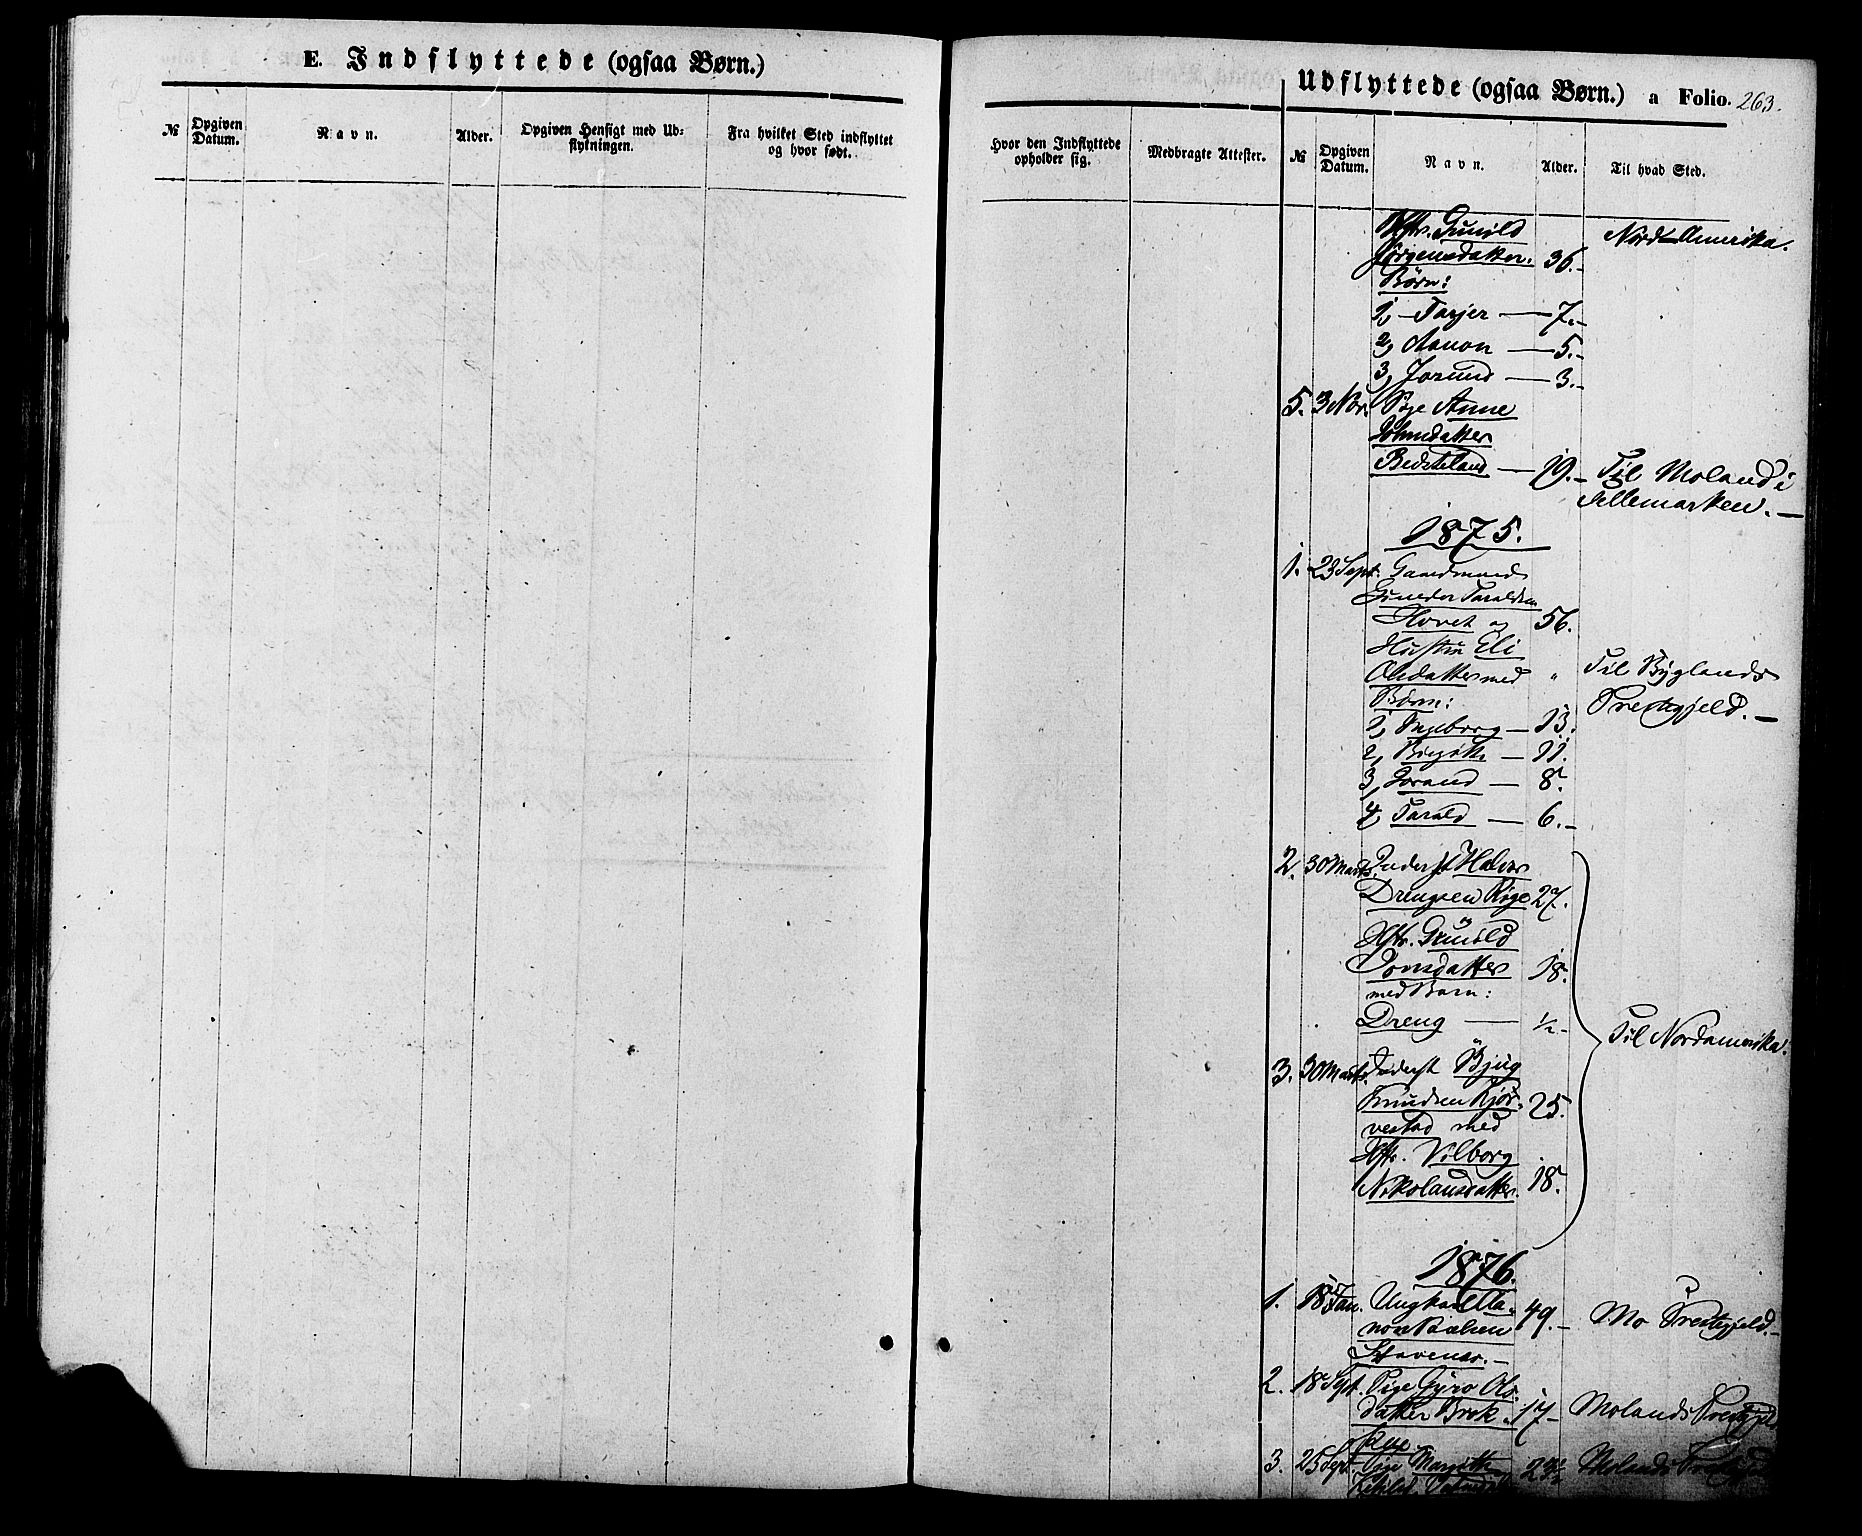 E. Indflyttede (ogsaa Børn.)
№
Opgiven Datum.
Navn.
Alder.
Opgiven Hensigt med Ud=
flytningen.
Fra hvilket Sted indflyttet
og hvor født.
Udflyttede (ogsaa Børn.) a Folio. 263.
Hvor den Indflyttede
opholder sig.
Medbragte Attester.
№
Opgiven
Datum.
Navn.
Alder.
Til hvad Sted.
Hstr. Gunild Nord-Amerika.
Jørgensdatter. 36.-
Børn:
1, - Tarjer — 7.-
2, Aanon — 5.-
3, Jorund — 3.-
5. 3 Nov. Pige Anne
Johnsdatter
— 19.- Til Moland i
Tellemarken. —
1875.
1. 23 Sept. Gaardmand
Gunder Taraldsen
Hovet og 56.
Hustru Eli
Olsdatter med " Til Byglands
Børn: Prestegjeld. —
1, Ingeborg — 13.
2, Birgitte — 11.
3, Jorand — 8.
4, Tarald — 6.-
2. 30 Marts. Inderst Halvor
Drengsen Rige 27.
og
Hstr. Gunild
Jonsdatter 18.
med Barn:
Dreng — ½-
Til Nordamerika.
3. 30 Marts. Inderst Bjug
Knudsen Kjør- 25.
vestad med
Hstr. Vilborg
Nikolausdatter. 18.
1876.
1. 18 Jan. Ungkarl Aa-
non 49.- Mo Prestegjeld.-
2. 18 Sept. Pige Gyro Ols-
datter Brok- 17- Molands Prestegjeld
3. 25 Sept. Pige Margith Molands